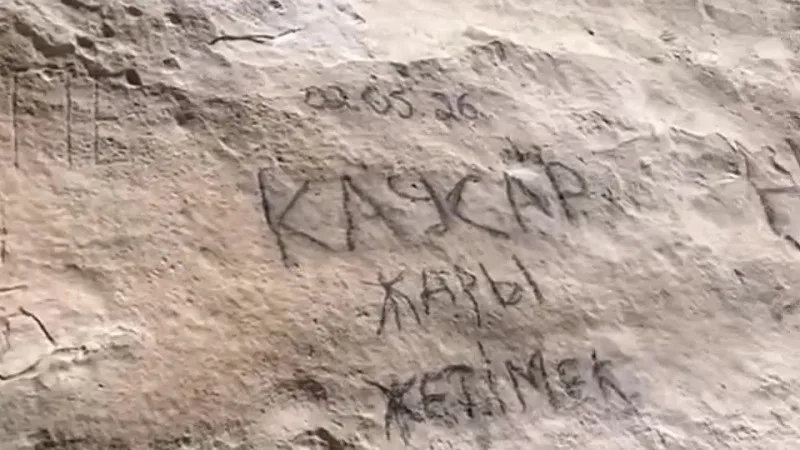 02.05.26.
КАУСАР
ЖАРЫ
ЖЕТІМЕК